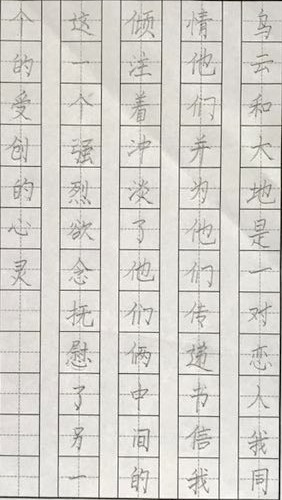 乌云和大地是一对恋人我同
情他们并为他们传递书信我
倾注着冲淡了他们俩中间的
这一个强烈欲念抚慰了另一
个的受创的心灵